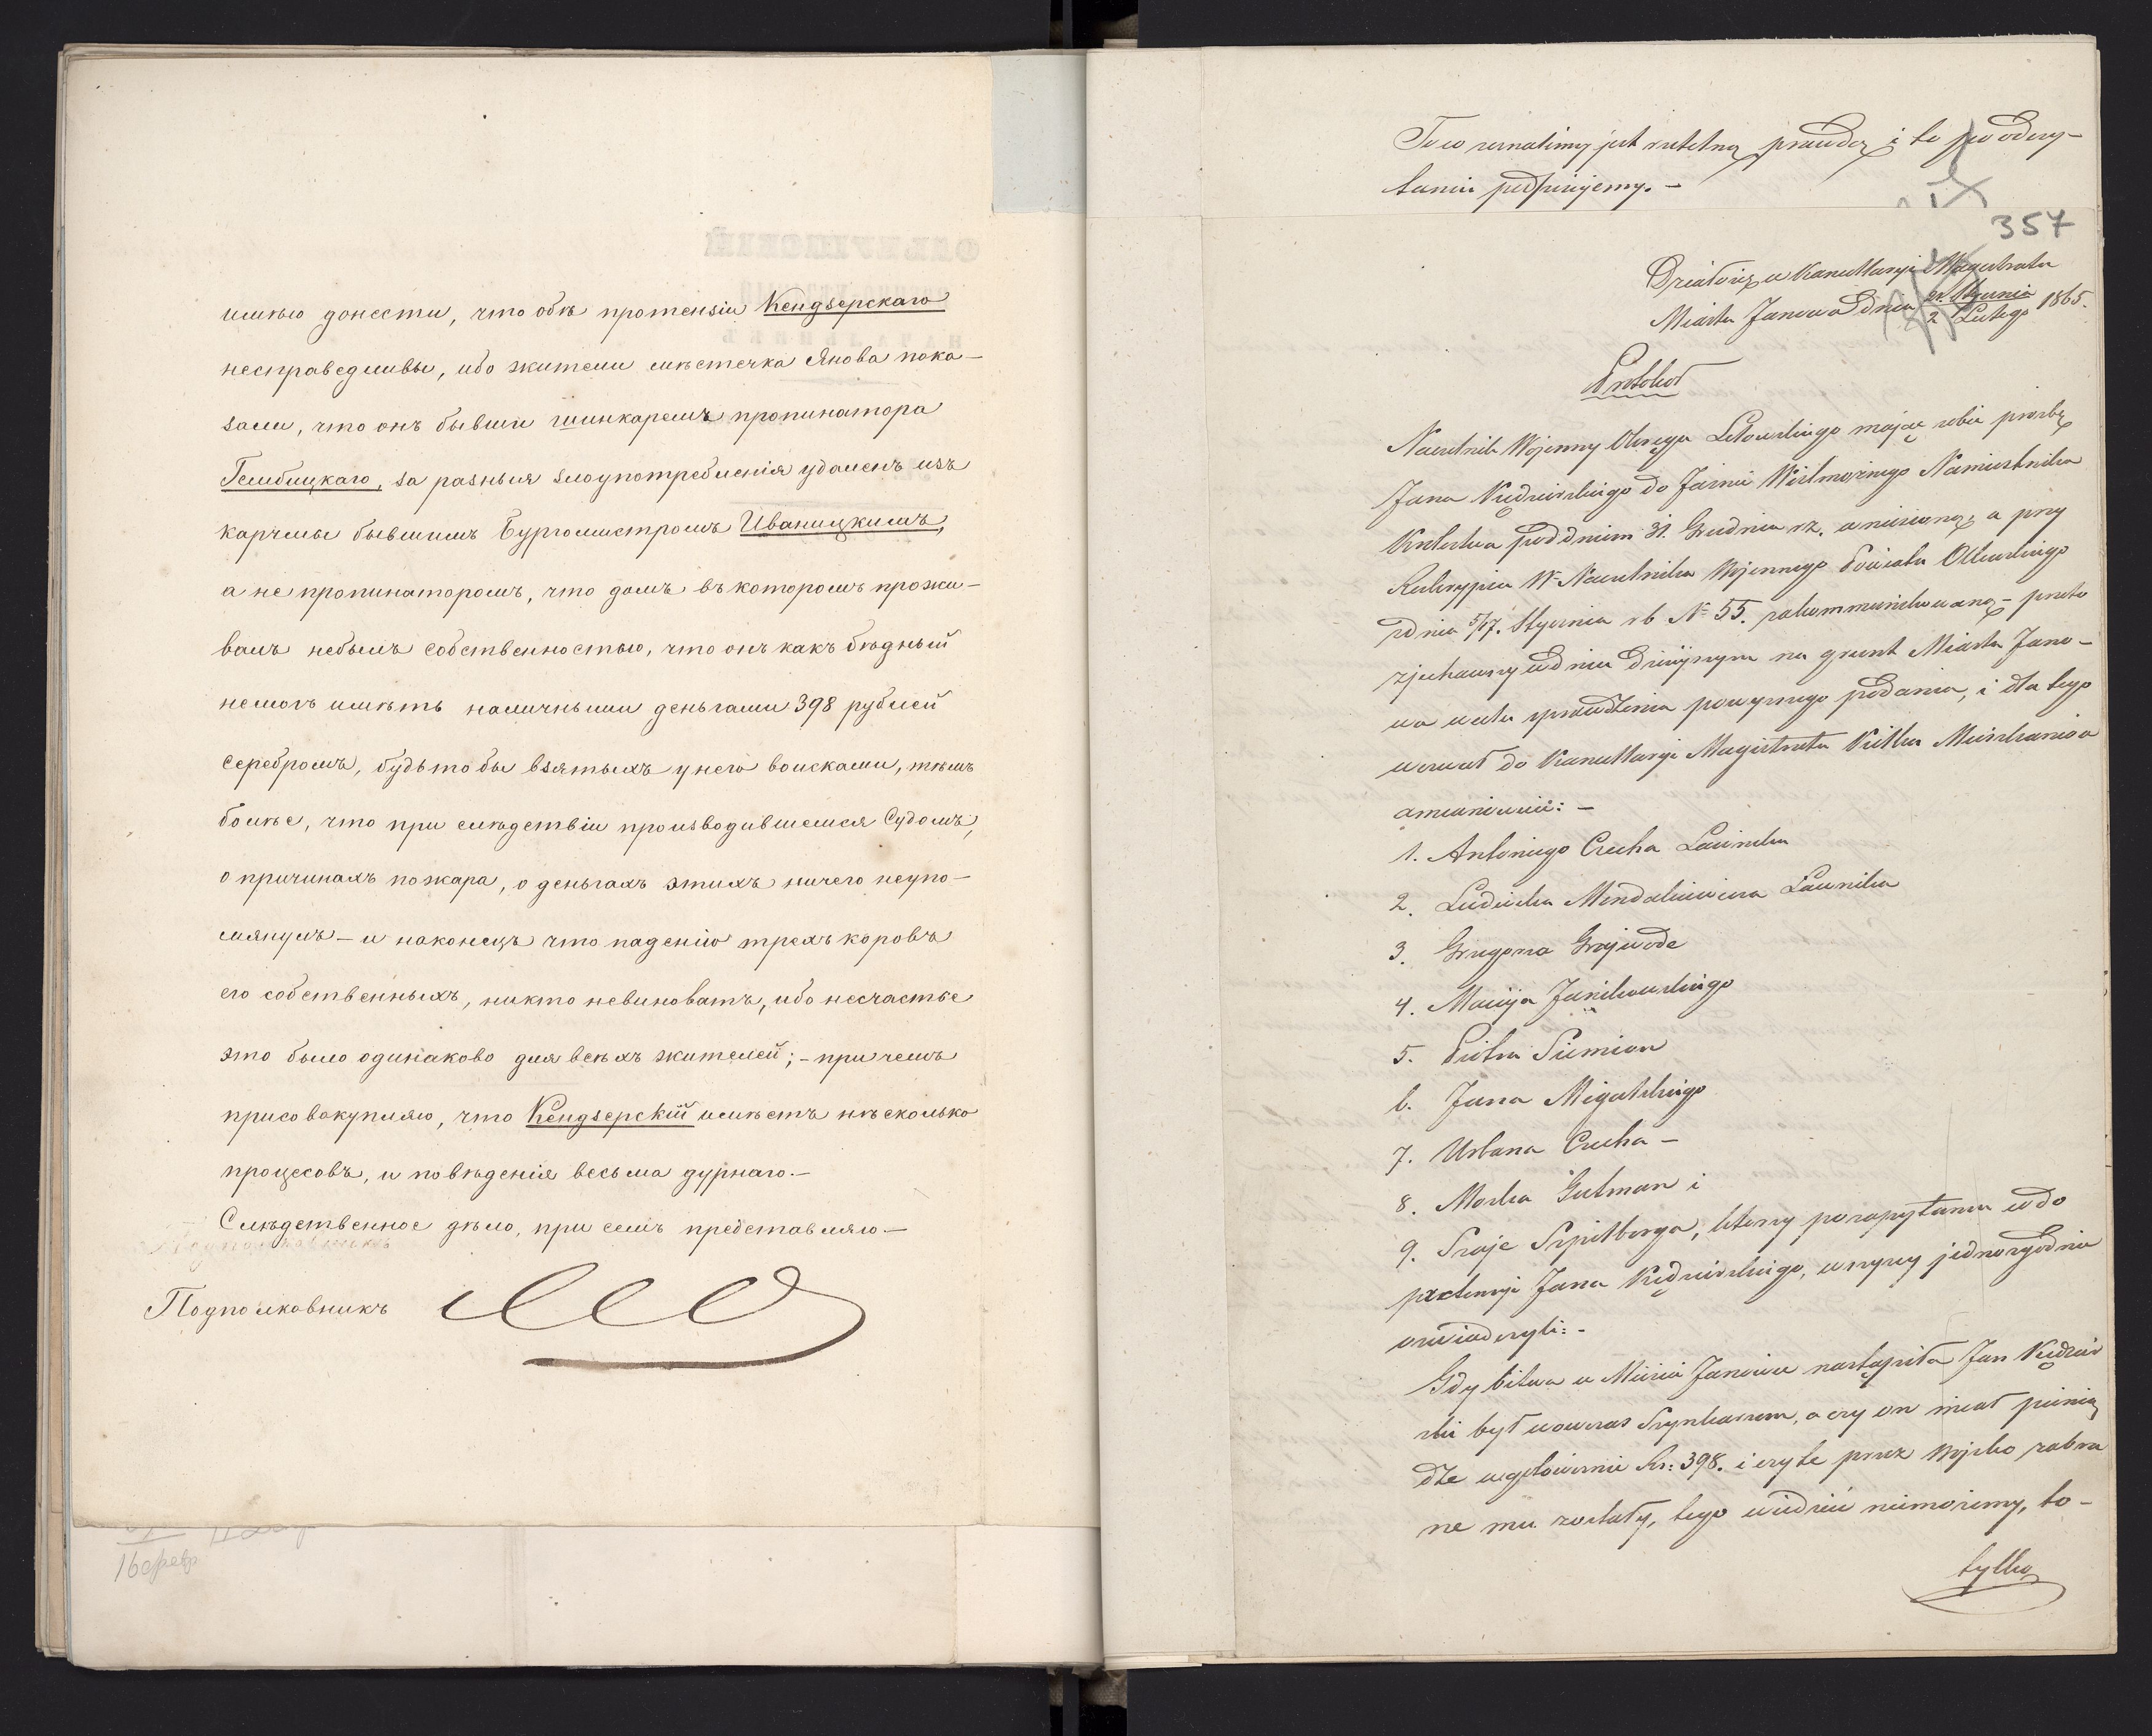 имѣю донести, что обѣ протензіи Кендзерскаго
несправедливы, ибо жители мѣстечка Янова пока-
зали, что онъ бывши шинкаремъ пропинатора
Гембицкаго, за разныя злоупотребленія удаленъ изъ
карчмы бывшимъ Бургомистромъ Иваницкимъ,
а не пропинаторомъ, что домъ въ которомъ прожи-
валъ небылъ собственностью, что онъ какъ бѣдный
немогъ имѣть наличными деньгами 398 рублей
серебромъ, будьто бы взятыхъ у него воисками, тѣмъ
болѣе, что при слѣдствіи производившемся Судомъ,
о причинахъ пожара, о деньгахъ этихъ ничего неупо-
мянулъ - и наконецъ что паденію трехъ коровъ
его собственныхъ, никто невиноватъ, ибо несчастье
это было одинаково для всѣхъ жителей; - при чемъ
присовакупляю, что Кендзерскій имѣетъ нѣсколько
процесовъ, и повѣденія весьма дурнаго. -
Слѣдственное дѣло, при семъ представляю -
Подполковникъ
16 февр
To co zeznalimy jest rzetelną prawdą i to po odczy-
taniu podpisujemy. -
357
Działo się w Kancellaryi Magistratu
Miasta Janowa dnia 21 Stycznia / 2 Lutego 1865.
Protokół
Naczelnik Wojenny Okręgu Lelowskiego mając sobie prozbę
Jana Kędzierskiego do Jaśnie Wielmożnego Namiestnika
Królestwa pod dniem 31. Grudnia rz. wniesioną, a przy
Reskrypcie W. Naczelnika Wojennego Powiatu Olkuskiego
z dnia 5/17. Stycznia rb № 55. zakommunikowaną - przeto
zjechawszy w dniu dzisiejszym na grunt Miasta Jano-
wa w celu sprawdzenia powyższego podania, i dla tego
wezwał do Kancellaryi Magistratu Kilku Mieszkańców
a mianowicie: -
1. Antoniego Czecha Ławnika
2. Ludwika Mendakiewicza Ławnika
3. Grzegorza Grajwode
4. Macieja Janikowskiego
5. Piotra Siemion
6. Jana Migalskiego
7. Urbana Czecha -
8. Moska Gutman i
9. Szaje Szpilberga, którzy po zapytaniu wedo
pretensyi Jana Kędzierskiego, wszyscy jednozgodnie
oświadczyli: -
Gdy bitwa w Mieście Janowie nastąpiła Jan Kędzier
ski był wowczas Szynkarzem, a czy on miał pienią
dze w gotowiznie Rs: 398. i czy te przez Wojsko zabra
ne mu zostały, tego wiedzieć niemożemy, to-
tylko